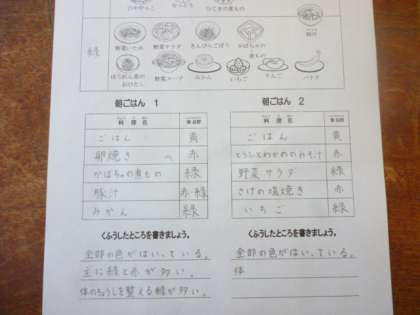 ひややっこ
ひじきの煮もの
豚汁
緑
野菜いため
野菜サラダ
きんぴらごぼう
かぼちゃの煮もの
ほうれん草のおひたし
野菜スープ
みかん
いちご
りんご
バナナ
朝ごはん 1
料理名
ごはん 黄
卵焼き 赤
かぼちゃの煮もの 緑
豚汁 赤・緑
みかん 緑
くふうしたところを書きましょう。
全部の色がはいっている。
主に緑と赤が多い。
体のちょうしを整える緑が多い。
朝ごはん 2
料理名
ごはん 黄
とうふとわかめのみそ汁 赤
野菜サラダ 緑
さけの塩焼き 赤
いちご 緑
くふうしたところを書きましょう。
全部の色がはいっている。
体